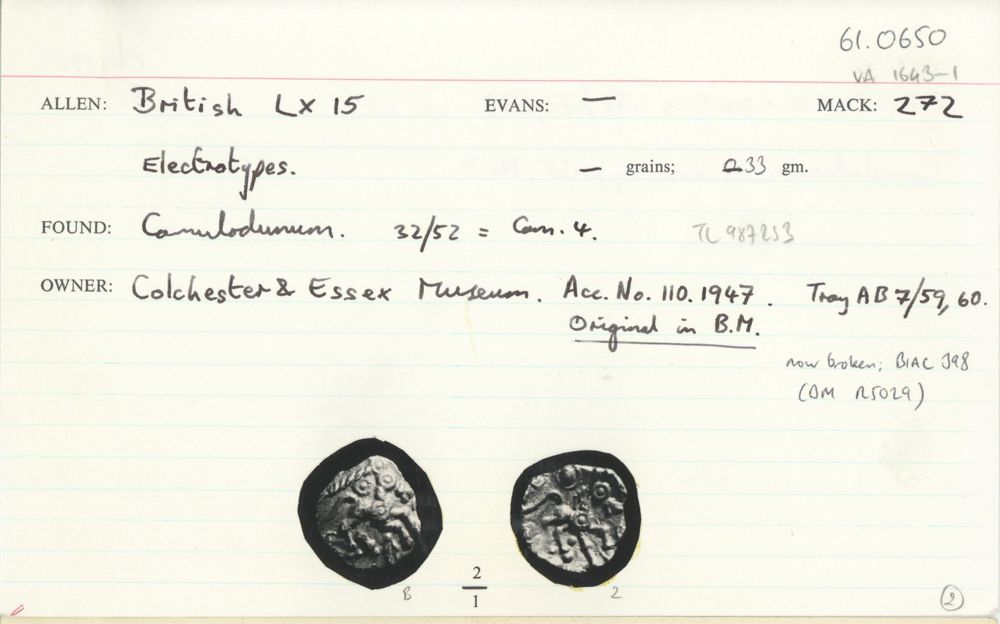 61.0650
VA 1643-1
ALLEN: British Lx 15 EVANS: — MACK: 272
Electrotypes. — grains; 0.33 gm.
FOUND: Camulodunum. 32/52 = Cam. 4. TL 987253
OWNER: Colchester & Essex Museum. Acc. No. 110.1947. Tray AB 7/59, 60.
Original in B.M.
now broken; BIAC 398
(BM R5029)
2
1
B 2
2